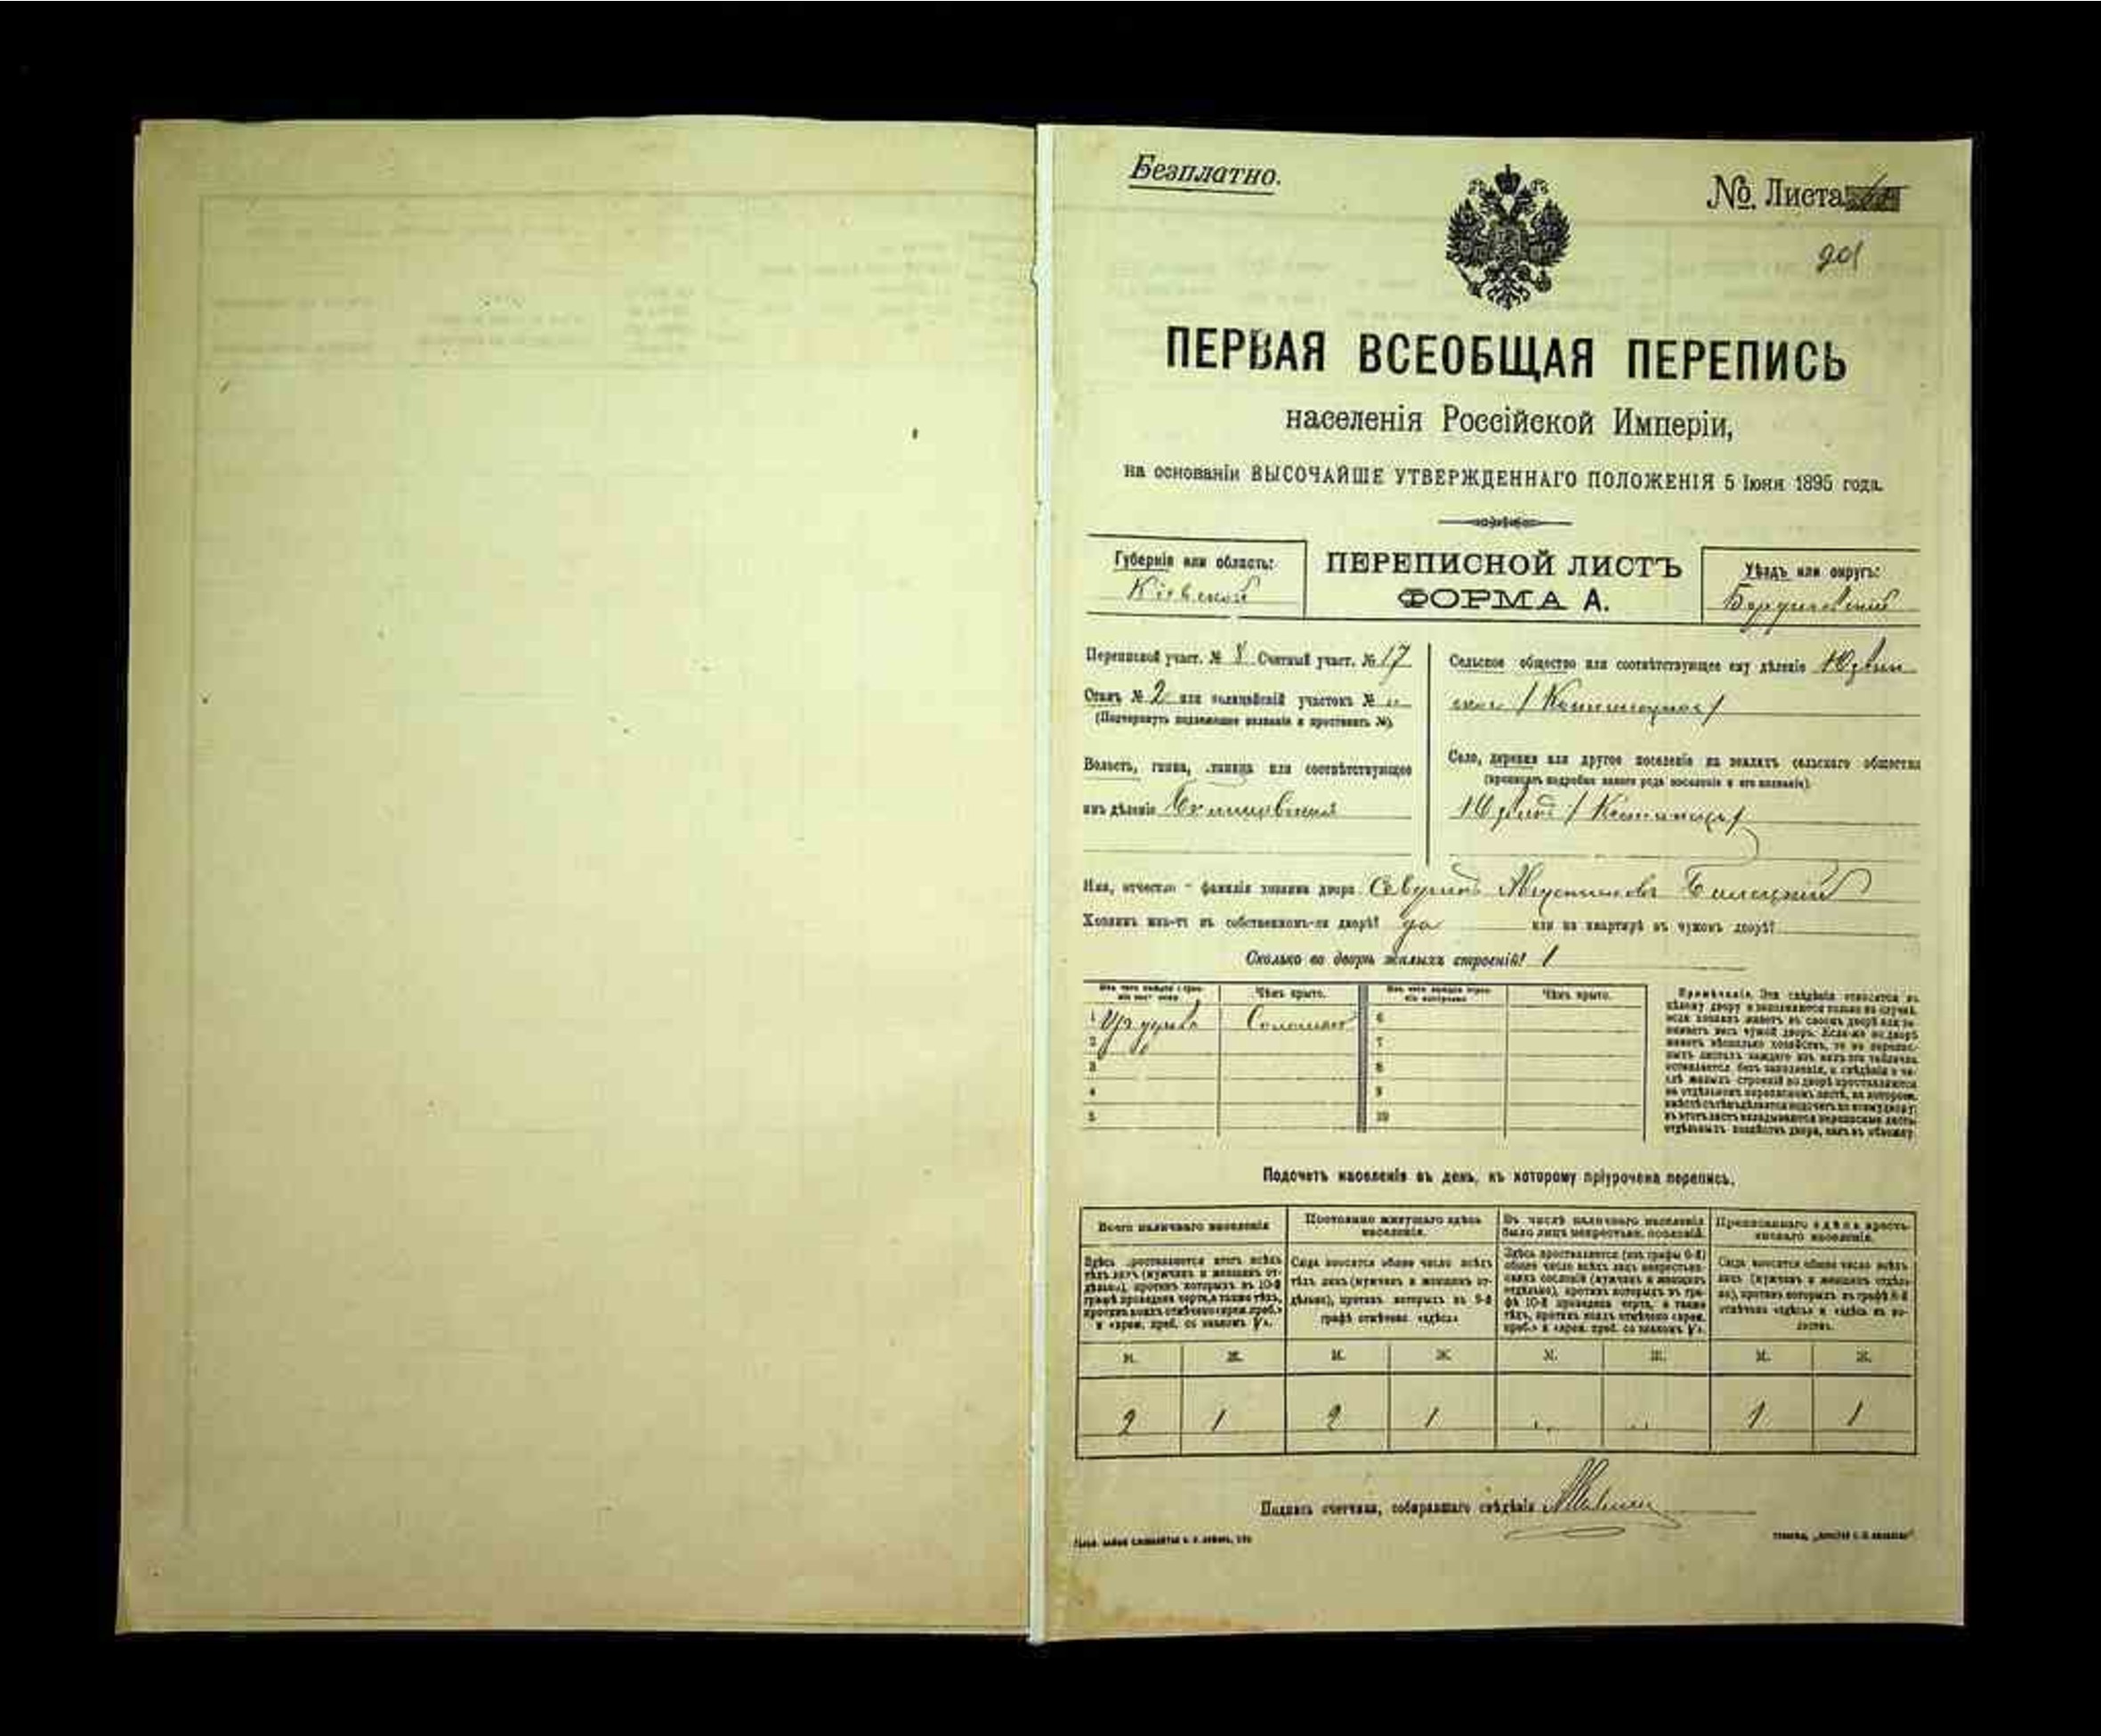 Безплатно.
№ Листа
201
ПЕРВАЯ ВСЕОБЩАЯ ПЕРЕПИСЬ
населенія Россійской Имперіи,
на основаніи ВЫСОЧАЙШЕ УТВЕРЖДЕННАГО ПОЛОЖЕНІЯ 5 Іюня 1895 года.
Губернія или область:
Кіевской
ПЕРЕПИСНОЙ ЛИСТЪ
ФОРМА А.
Уѣздъ или округъ:
Бердичевскій
Переписной участ. № 8 Счетный участ. № 17
Станъ № 2 или полицейскій участокъ №
(Подчеркнуть подлежащее названіе и проставить №).
Волость, гмина, станица или соотвѣтствующее
имъ дѣленіе
Сельское общество или соотвѣтствующее ему дѣленіе
Село, деревня или другое поселеніе на земляхъ сельскаго общества
(прописать подробно какого рода поселеніе и его названіе).
Имя, отчество и фамилія хозяина двора Северинъ Августиновъ Билецкій
Хозяинъ живетъ въ собственномъ-ли дворѣ? да или на квартирѣ въ чужомъ дворѣ?
Сколько во дворѣ жилыхъ строеній? 1
Чѣмъ крыто.
Чѣмъ крыто.
1 Изъ дерева Соломою 6
2 7
3 8
4 9
5 10
Примѣчаніе. Эти свѣдѣнія относятся къ
цѣлому двору и заполняются только въ случаѣ,
если хозяинъ живетъ въ своемъ дворѣ или за-
нимаетъ весь чужой дворъ. Если-же во дворѣ
живетъ нѣсколько хозяйствъ, то на перепис-
ныхъ листахъ каждаго изъ нихъ эта табличка
оставляется безъ заполненія, а свѣдѣнія о чи-
слѣ жилыхъ строеній во дворѣ проставляются
на отдѣльномъ переписномъ листѣ, на которомъ
Подсчетъ населенія въ день, къ которому пріурочена перепись.
Всего наличнаго населенія
Здѣсь проставляется итогъ всѣхъ
тѣхъ лицъ (мужчинъ и женщинъ от-
дѣльно), противъ которыхъ въ 10-й
графѣ проведена черта, а также тѣхъ,
противъ коихъ отмѣчено «врем. преб.»
и «врем. преб. со знакомъ V».
Постоянно живущаго здѣсь
населенія.
Сюда вносится общее число всѣхъ
тѣхъ лицъ (мужчинъ и женщинъ от-
дѣльно), противъ которыхъ въ 9-й
графѣ отмѣчено «здѣсь»
Въ числѣ наличнаго населенія
было лицъ некрестьянск. сословій.
Здѣсь проставляется (изъ графы 6-й)
общее число всѣхъ лицъ некрестьян-
скихъ сословій (мужчинъ и женщинъ
отдѣльно), противъ которыхъ въ гра-
фѣ 10-й проведена черта, а также
тѣхъ, противъ коихъ отмѣчено «врем.
преб.» и «врем. преб. со знакомъ V».
Приписаннаго здѣсь кресть-
янскаго населенія.
Сюда вносится общее число всѣхъ
лицъ (мужчинъ и женщинъ отдѣль-
но), противъ которыхъ въ графѣ 8-й
отмѣчено «здѣсь» и «здѣсь въ во-
лости».
М. Ж. М. Ж. М. Ж. М. Ж.
2 1 2 1 1 1
Подпись счетчика, собиравшаго свѣдѣнія